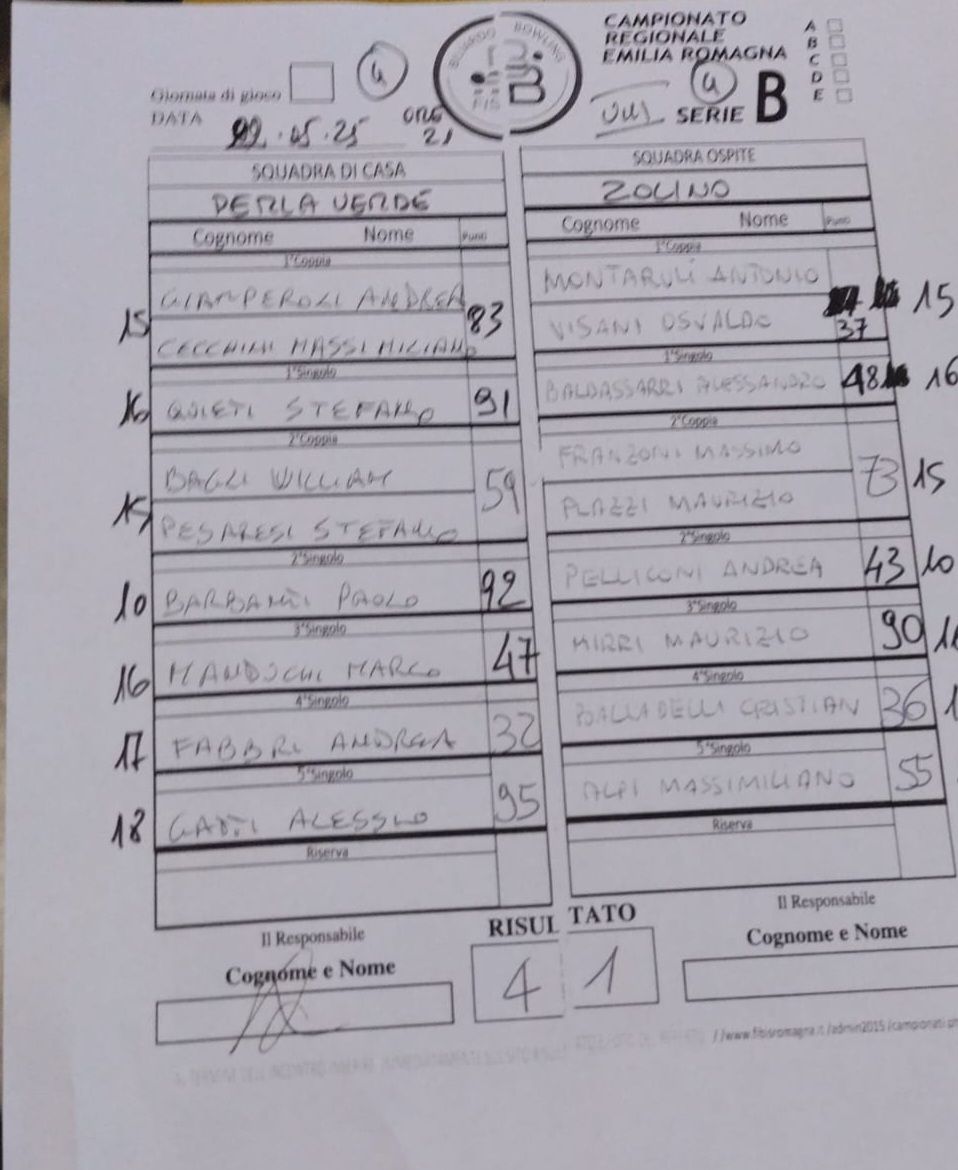 BILIARDO BOWLING
FIS B
CAMPIONATO
REGIONALE
EMILIA ROMAGNA
SERIE B
A
B
C
D
E
4
Giornata di gioco
4
DATA 22.05.25 ORE 21
SQUADRA DI CASA
PERLA VERDE
Cognome Nome Punti
1°Coppia
15 GIAMPEROLI ANDREA 83
CECCHINI MASSIMILIANO
1°Singolo
16 QUIETI STEFANO 91
2°Coppia
BAGLI WILLIAM 59
15 PESARESI STEFANO
2°Singolo
10 BARBANTI PAOLO 92
3°Singolo
16 MANDUCHI MARCO 47
4°Singolo
17 FABBRI ANDREA 32
5°Singolo
18 GATTI ALESSIO 95
Riserva
Il Responsabile
Cognome e Nome
SQUADRA OSPITE
ZOLINO
Cognome Nome Punti
1°Coppia
MONTARULI ANTONIO
VISANI OSVALDO 37 15
1°Singolo
BALDASSARRI ALESSANDRO 48 16
2°Coppia
FRANZONI MASSIMO
PLAZZI MAURIZIO 73 15
2°Singolo
PELLICONI ANDREA 43 10
3°Singolo
MIRRI MAURIZIO 90
4°Singolo
BALLADELLI CRISTIAN 36
5°Singolo
ALPI MASSIMILIANO 55
Riserva
Il Responsabile
Cognome e Nome
RISULTATO
4 1
//www.fibisromagna.it/admin2015/campionati